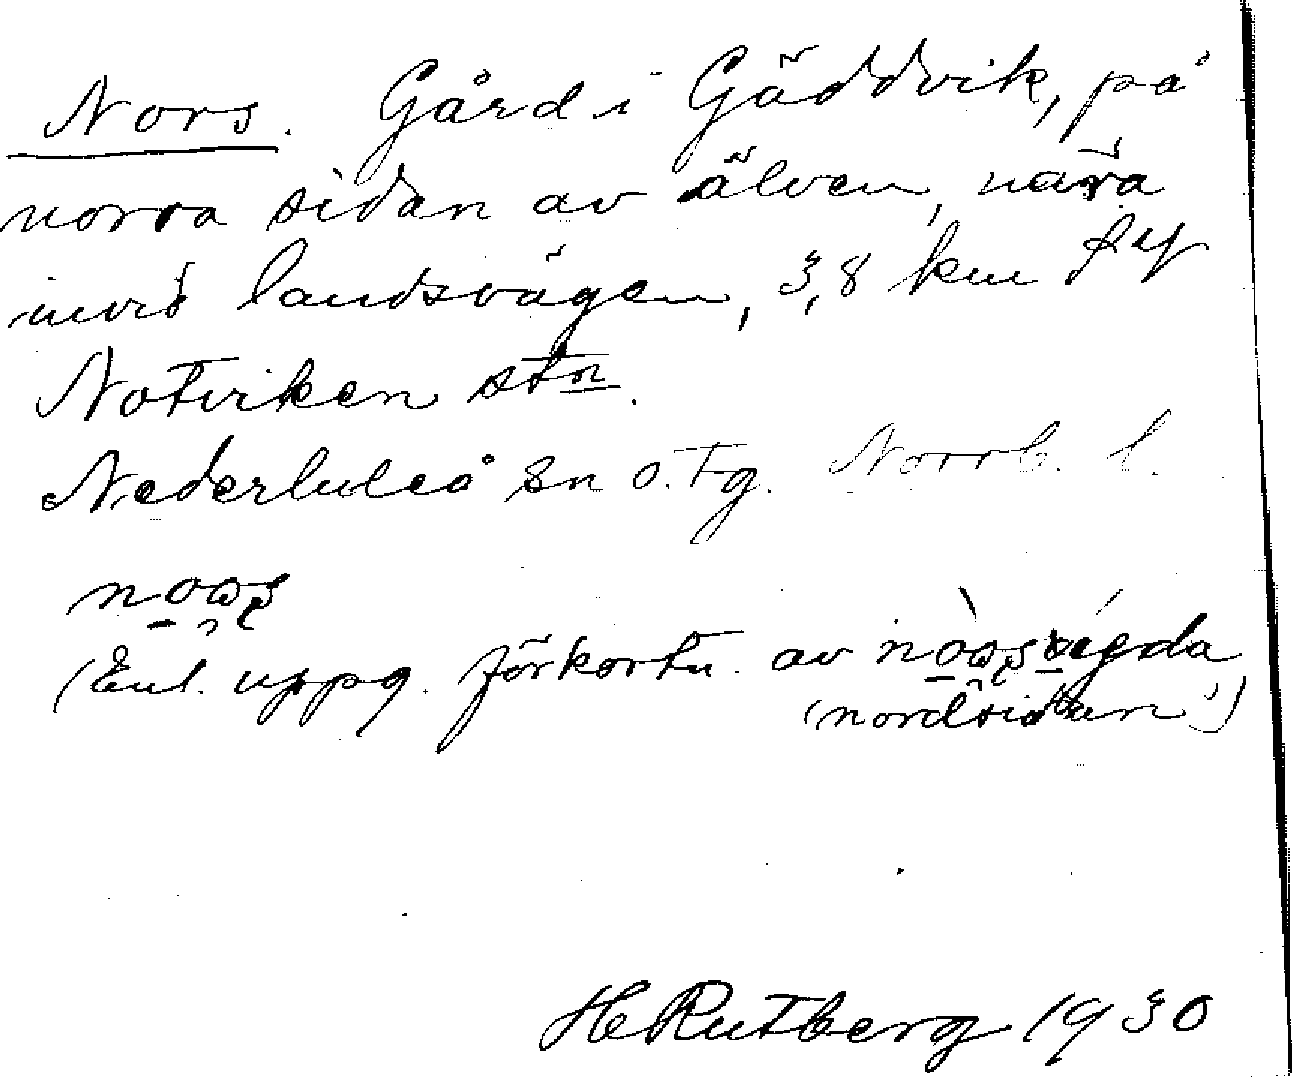 Nors. Gård i Gäddvik, på
norra sidan av älven, nära
invid landsvägen, 3,8 km SV
Notviken stn.
Nederluleå sn o. tg. Norrb. l.
(Enl. uppg. förkortn. av
(nordsidan))
HRutberg 1930